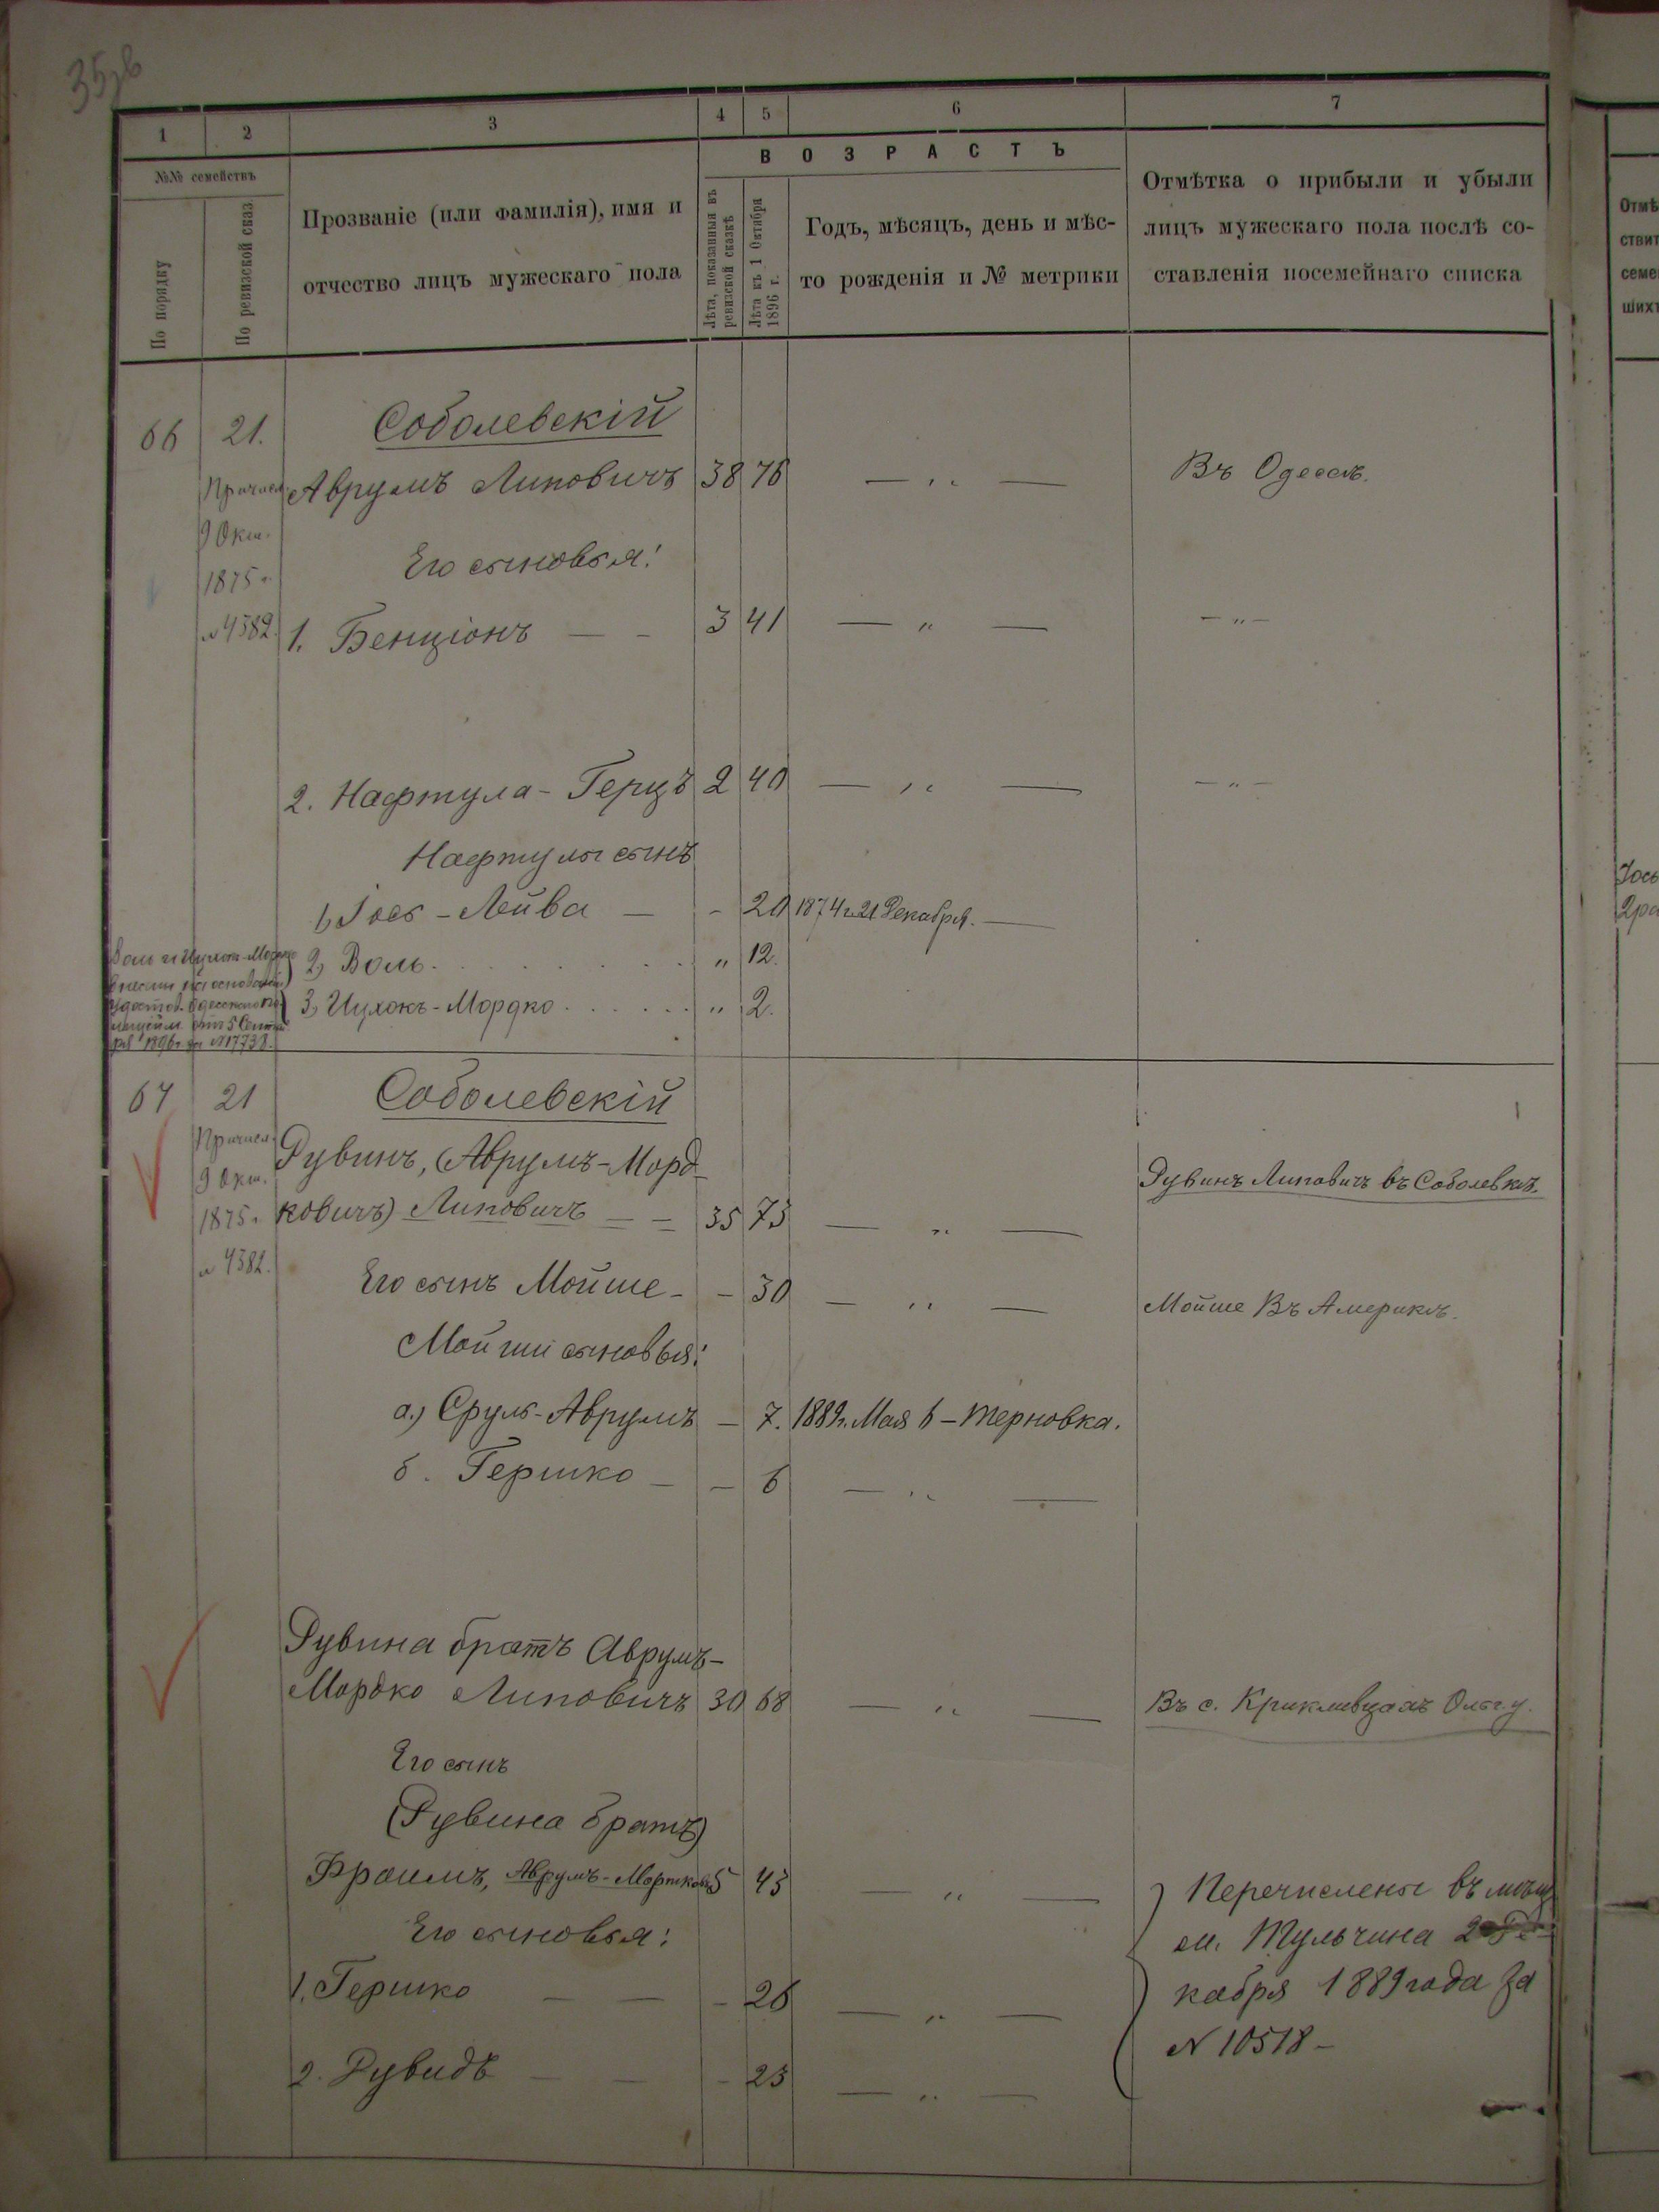 1 2 3 4 5 6 7
№№ семействъ
По порядку
По ревизской сказ
Прозваніе (или фамилія), имя и
отчество лицъ мужескаго пола
ВОЗРАСТЪ
Лѣта, показанныя въ
ревизской сказкѣ
Лѣта къ 1 Октября
1896 г.
Годъ, мѣсяцъ, день и мѣс-
то рожденія и № метрики
Отмѣтка о прибыли и убыли
лицъ мужескаго пола послѣ со-
ставленія посемейнаго списка
66 21. Соболевскій
Причисл. Аврумъ Липовичъ 38 76 — „ — Въ Одессѣ.
9 Окт.
Его сыновья:
1875 г.
№ 4382. 1. Бенціонъ — - 3 41 — „ — — „ —
2. Нафтула - Герцъ 2 40 — „ — — „ —
Нафтулы сынъ
1, Іось - Лейва — - 20 1874 г. 21 Декабря. —
2, Воль . . . . . „ 12.
3, Ицхокъ - Мордко . . . . . „ 2.
67 21 Соболевскій
Причисл.
9 Окт.
1875 г.
№ 4382.
Рувинъ, (Аврумъ-Морд-
ковичъ) Липовичъ — = 35 73 — „ — Рувинъ Липовичъ въ Соболевкѣ.
Его сынъ Мойше - - 30 — „ — Мойше Въ Америкѣ.
Мойши сыновья:
а.) Сруль-Аврумъ — 7. 1889 г. Мая 6 — Терновка.
б. Гершко — — 6 — „ —
Рувина братъ Аврумъ-
Мордко Липовичъ 30 68 — „ — Въ с. Крикливцахъ Ольг. у.
Его сынъ
(Рувина братъ)
Фроимъ, Аврумъ-Мортков 5 43 — „ — Перечислены въ мѣщ
Его сыновья: м. Тульчина 2 Де-
1. Гершко — — - 26 — „ — кабря 1889 года за
№ 10518 —
2. Рувидъ — — - 23 — „ —